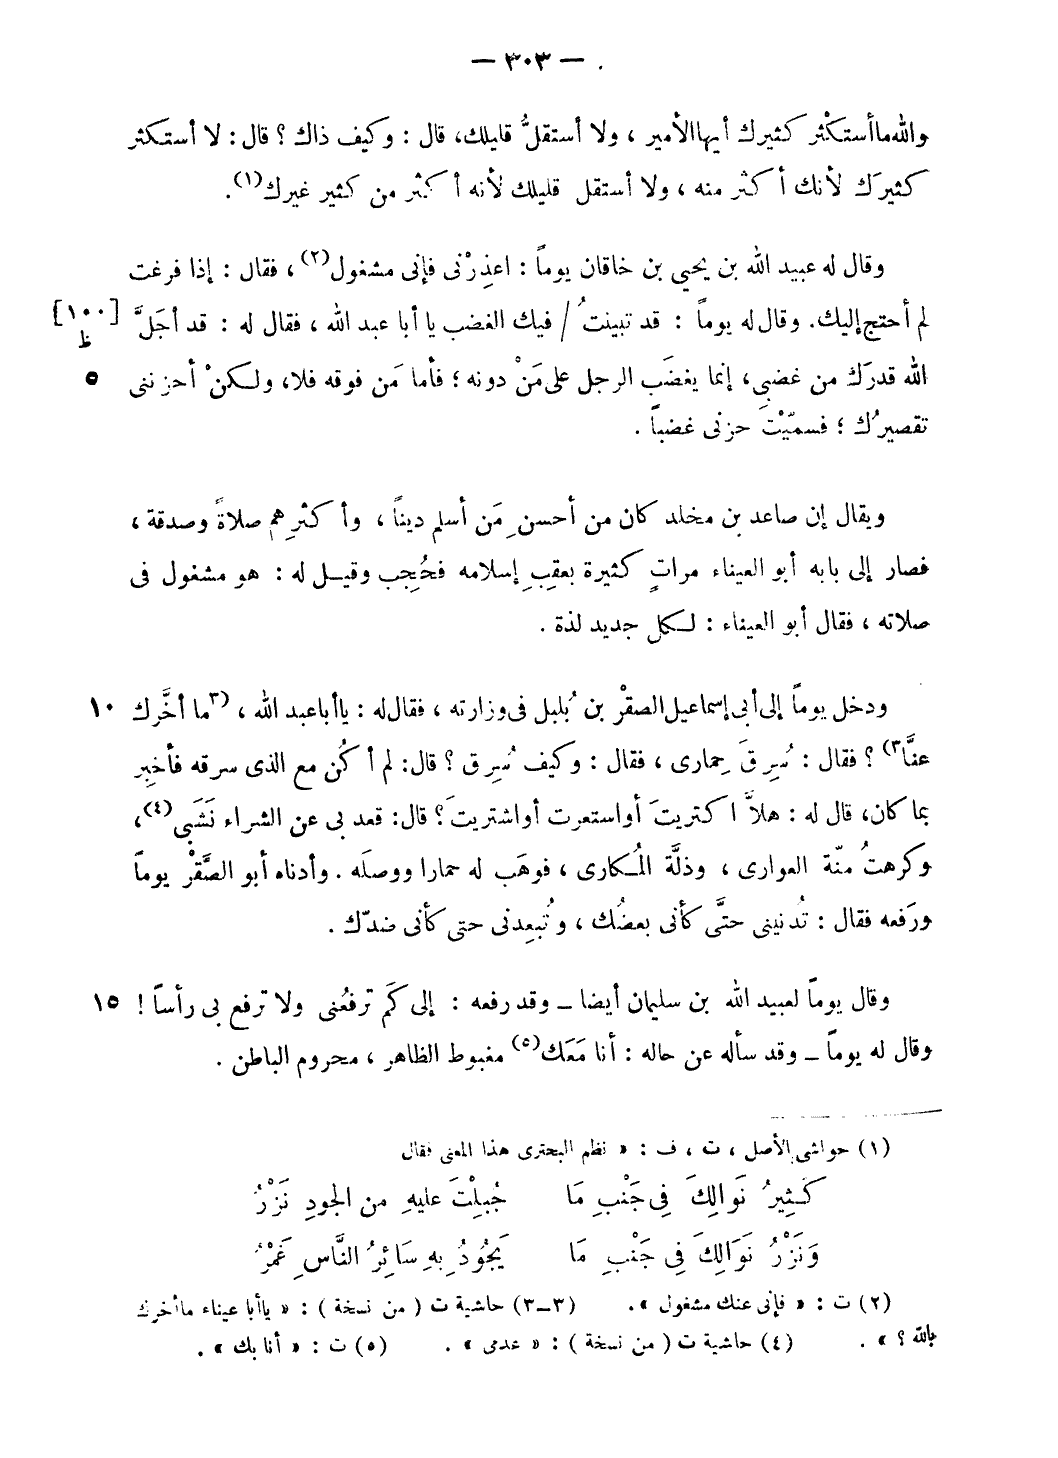 — ٣٠٣ —
والله ما أستكْثر كثيرك أيها الأمير ، ولا أستقلُّ قليلك، قال : وكيف ذاك ؟ قال : لا أستكثر
كثيرَك لأنك أكثر منه ، ولا أستقل قليلك لأنه أكثر من كثير غيرك(١).
وقال له عبيد الله بن يحيي بن خاقان يوماً : اعذِرْنى فإنى مشغول(٢) ، فقال : إذا فرغت
لم أحتج إليك. وقال له يوماً : قد تبينتُ / فيك الغضب يا أبا عبد الله ، فقال له : قد أجَلَّ [١٠٠ ظ]
الله قدرَك من غضبى، إنما يغضَب الرجل على مَنْ دونه ؛ فأما مَن فوقه فلا، ولكنْ أحزننى ٥
تقصيرُك ؛ فسمّيْتَ حزنى غضباً .
ويقال إن صاعد بن مخلد كان من أحسنِ مَن أسلم ديناً ، وأكثرِهم صلاةً وصدقة ،
فصار إلى بابه أبو العيناء مراتٍ كثيرة بعقِبِ إسلامه فحُجِب وقيل له : هو مشغول فى
صلاته ، فقال أبو العيناء : لكل جديد لذة .
ودخل يوماً إلى أبى إسماعيل الصقْر بن بُلبل فى وزارته ، فقال له : يا أبا عبد الله ، (٣ما أخَّرك ١٠
عنَّا٣) ؟ فقال : سُرِقَ حِمارى ، فقال : وكيف سُرِق ؟ قال: لم أكُن مع الذى سرقه فأُخبِر
بما كان، قال له : هلاَّ اكتريتَ أو استعرت أو اشتريتَ؟ قال: قعد بى عن الشراء نَشَبى(٤)،
وكرهتُ منّة العوارى ، وذلَّة المُكارى ، فوهَب له حمارا ووصلَه . وأدناه أبو الصَّقْر يوماً
ورَفعه فقال : تُدنينى حتَّى كأنى بعضُك ، وتُبعِدنى حتى كأنى ضدّك .
وقال يوماً لعبيد الله بن سليمان أيضا — وقد رفعه : إلى كَم ترفعُنى ولا ترفع بى رأساً ! ١٥
وقال له يوماً — وقد سأله عن حاله : أنا مَعَك(٥) مغبوط الظاهر ، محروم الباطن .
(١) حواشى الأصل ، ت ، ف : « نظم البحترى هذا المعنى فقال
كَثِيرُ نَوالِكَ فِى جَنْبِ مَا جُبلْتَ عليهِ من الجودِ نَزْرُ
وَنَزْرُ نَوَالِكَ فِى جَنْبِ مَا يَجُودُ بِهِ سَائِرُ النَّاسِ غَمْرُ
(٢) ت : « فإنى عنك مشغول ». (٣-٣) حاشية ت ( من نسخة ) : « يا أبا عيناء ما أخرك
بالله ؟ » . (٤) حاشية ت ( من نسخة ) : « عدمى » . (٥) ت : « أنا بك » .